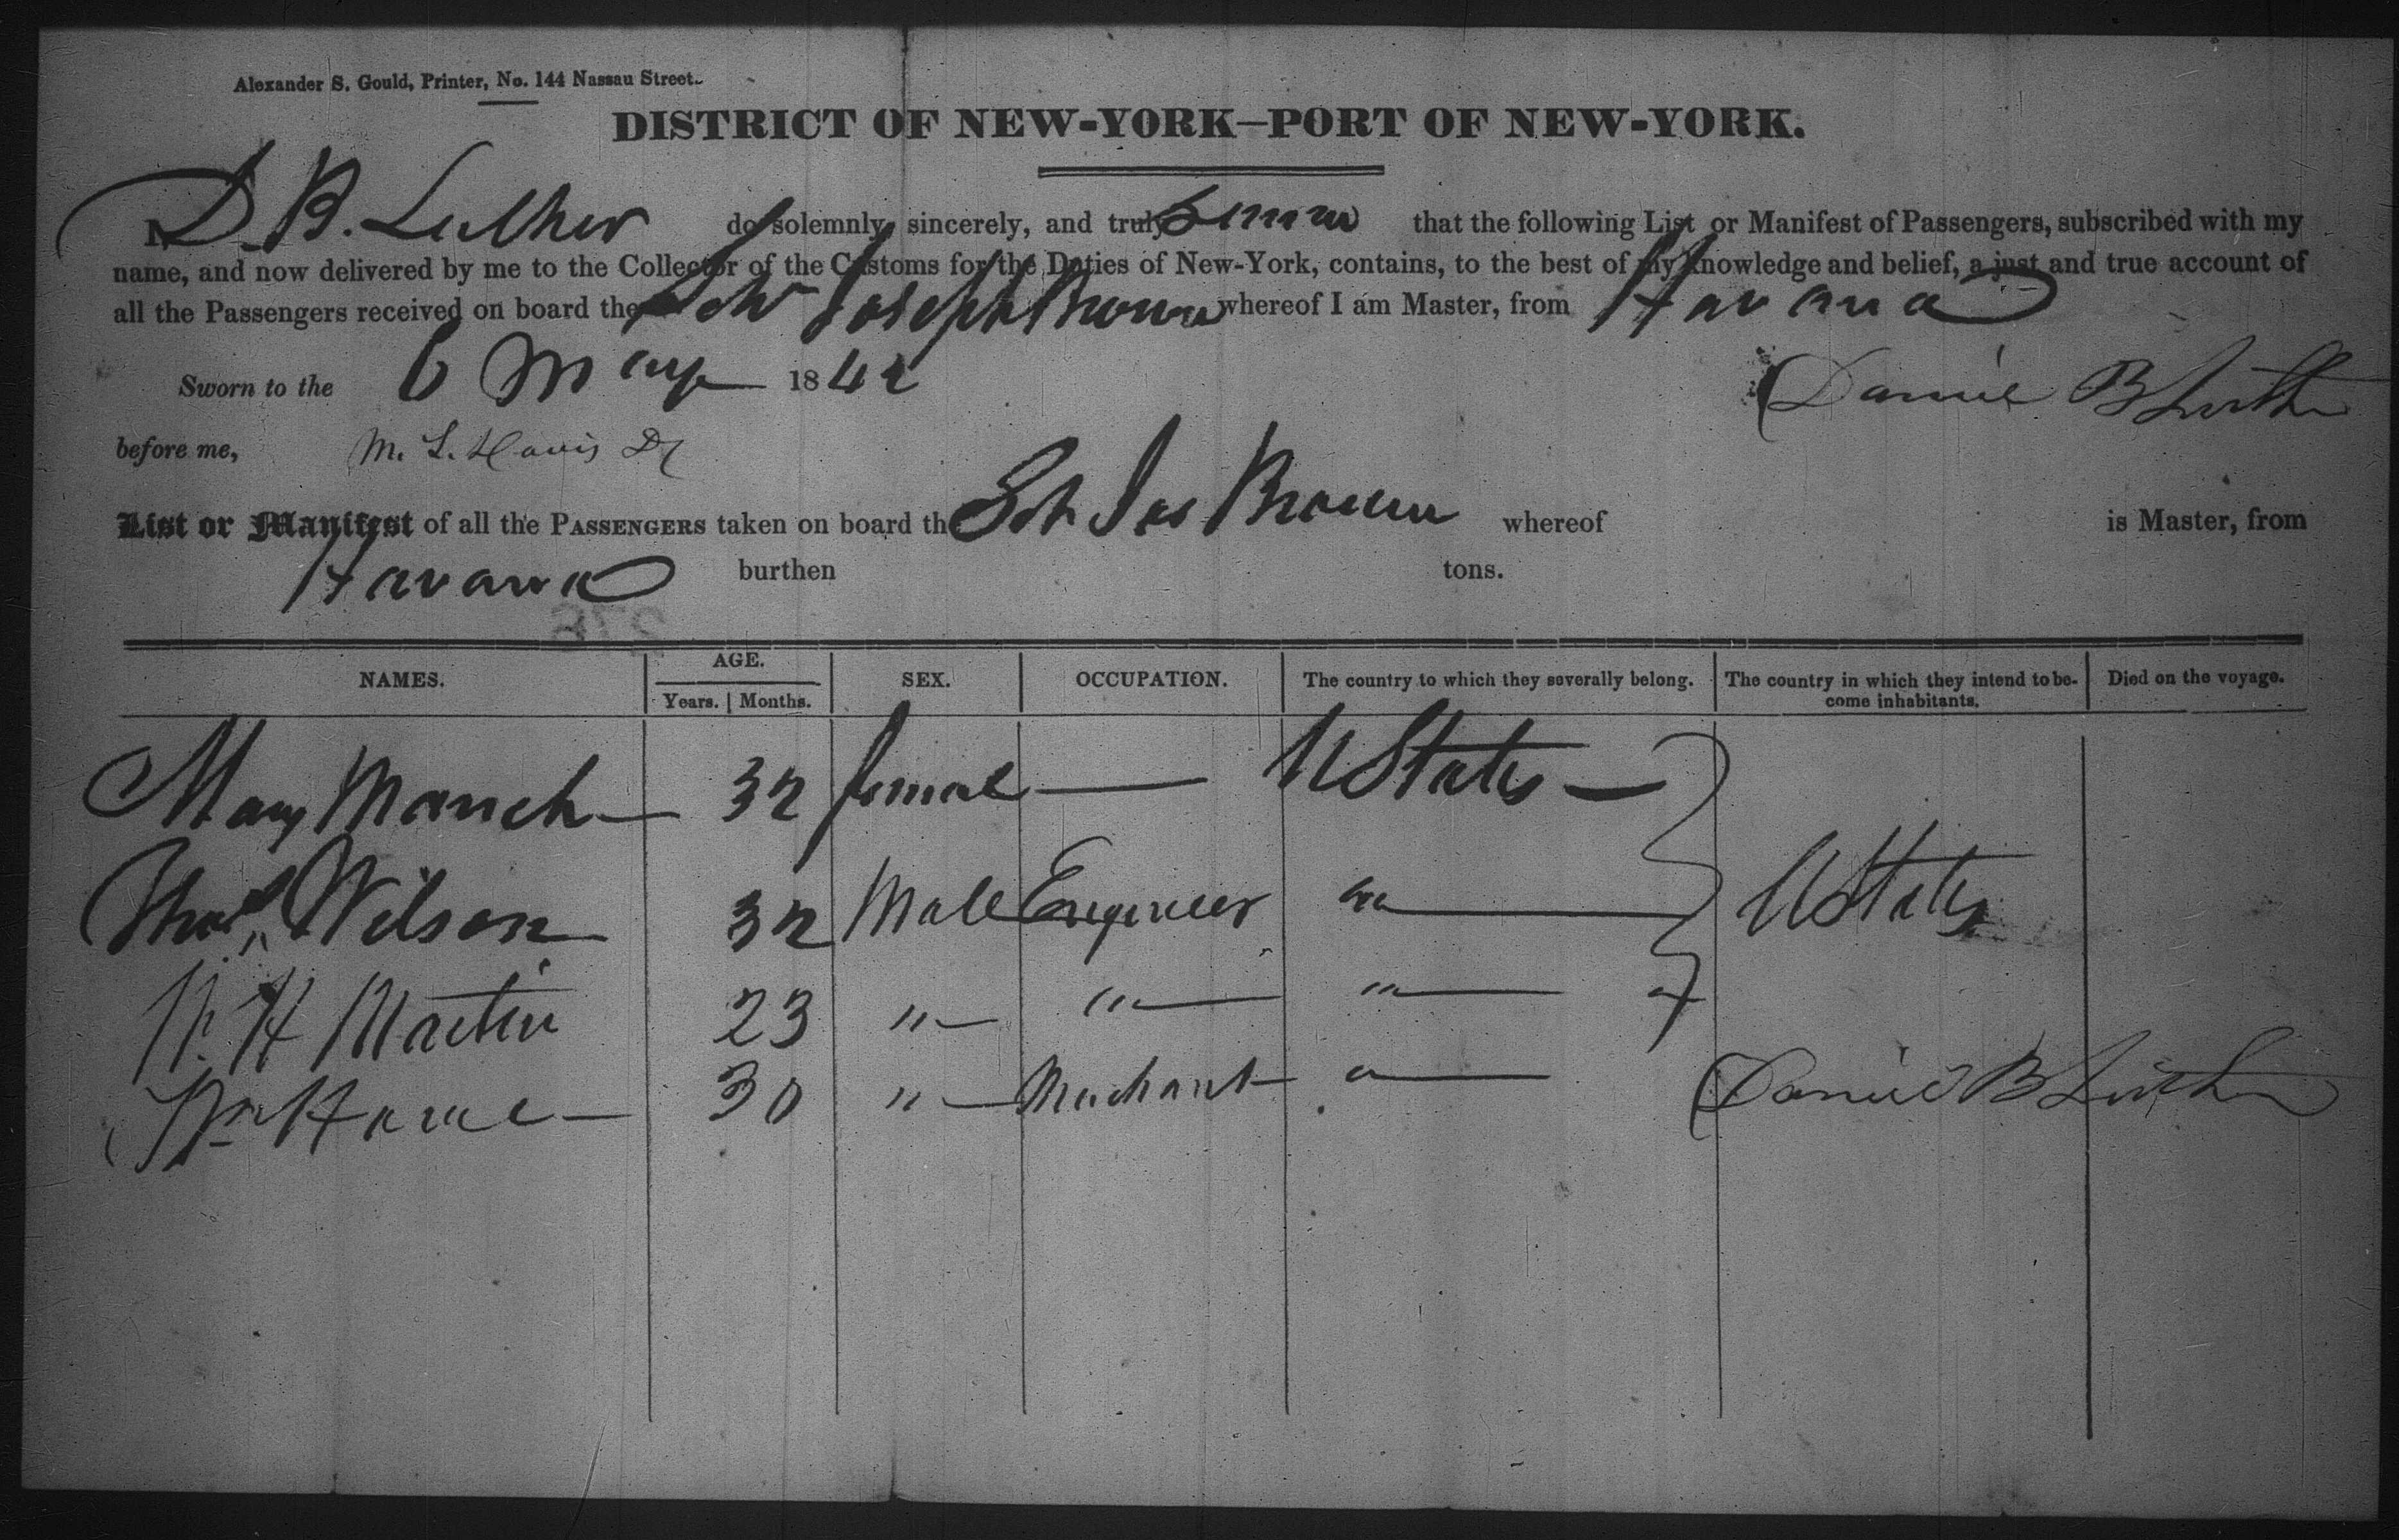 Alexander S. Gould, Printer, No. 144 Nassau Street.
DISTRICT OF NEW-YORK—PORT OF NEW-YORK.
I, D. B. Luther do solemnly, sincerely, and truly swear that the following List or Manifest of Passengers, subscribed with my
name, and now delivered by me to the Collector of the Customs for the Duties of New-York, contains, to the best of my knowledge and belief, a just and true account of
all the Passengers received on board the Schr Joseph Brown whereof I am Master, from Havana
Sworn to the 6 May 1842 Daniel B Luther
before me, M. L. Davis
List or Manifest of all the PASSENGERS taken on board the Sch Jos Brown whereof is Master, from
Havana burthen tons.
NAMES. AGE. Years. Months. SEX. OCCUPATION. The country to which they severally belong. The country in which they intend to become inhabitants. Died on the voyage.
Mary March — 32 female — U States —
Thos. Wilson 32 Male Engineer " — U States
H Martin 23 " — " — " —
Wm — 30 " — Merchant " — Daniel B Luther